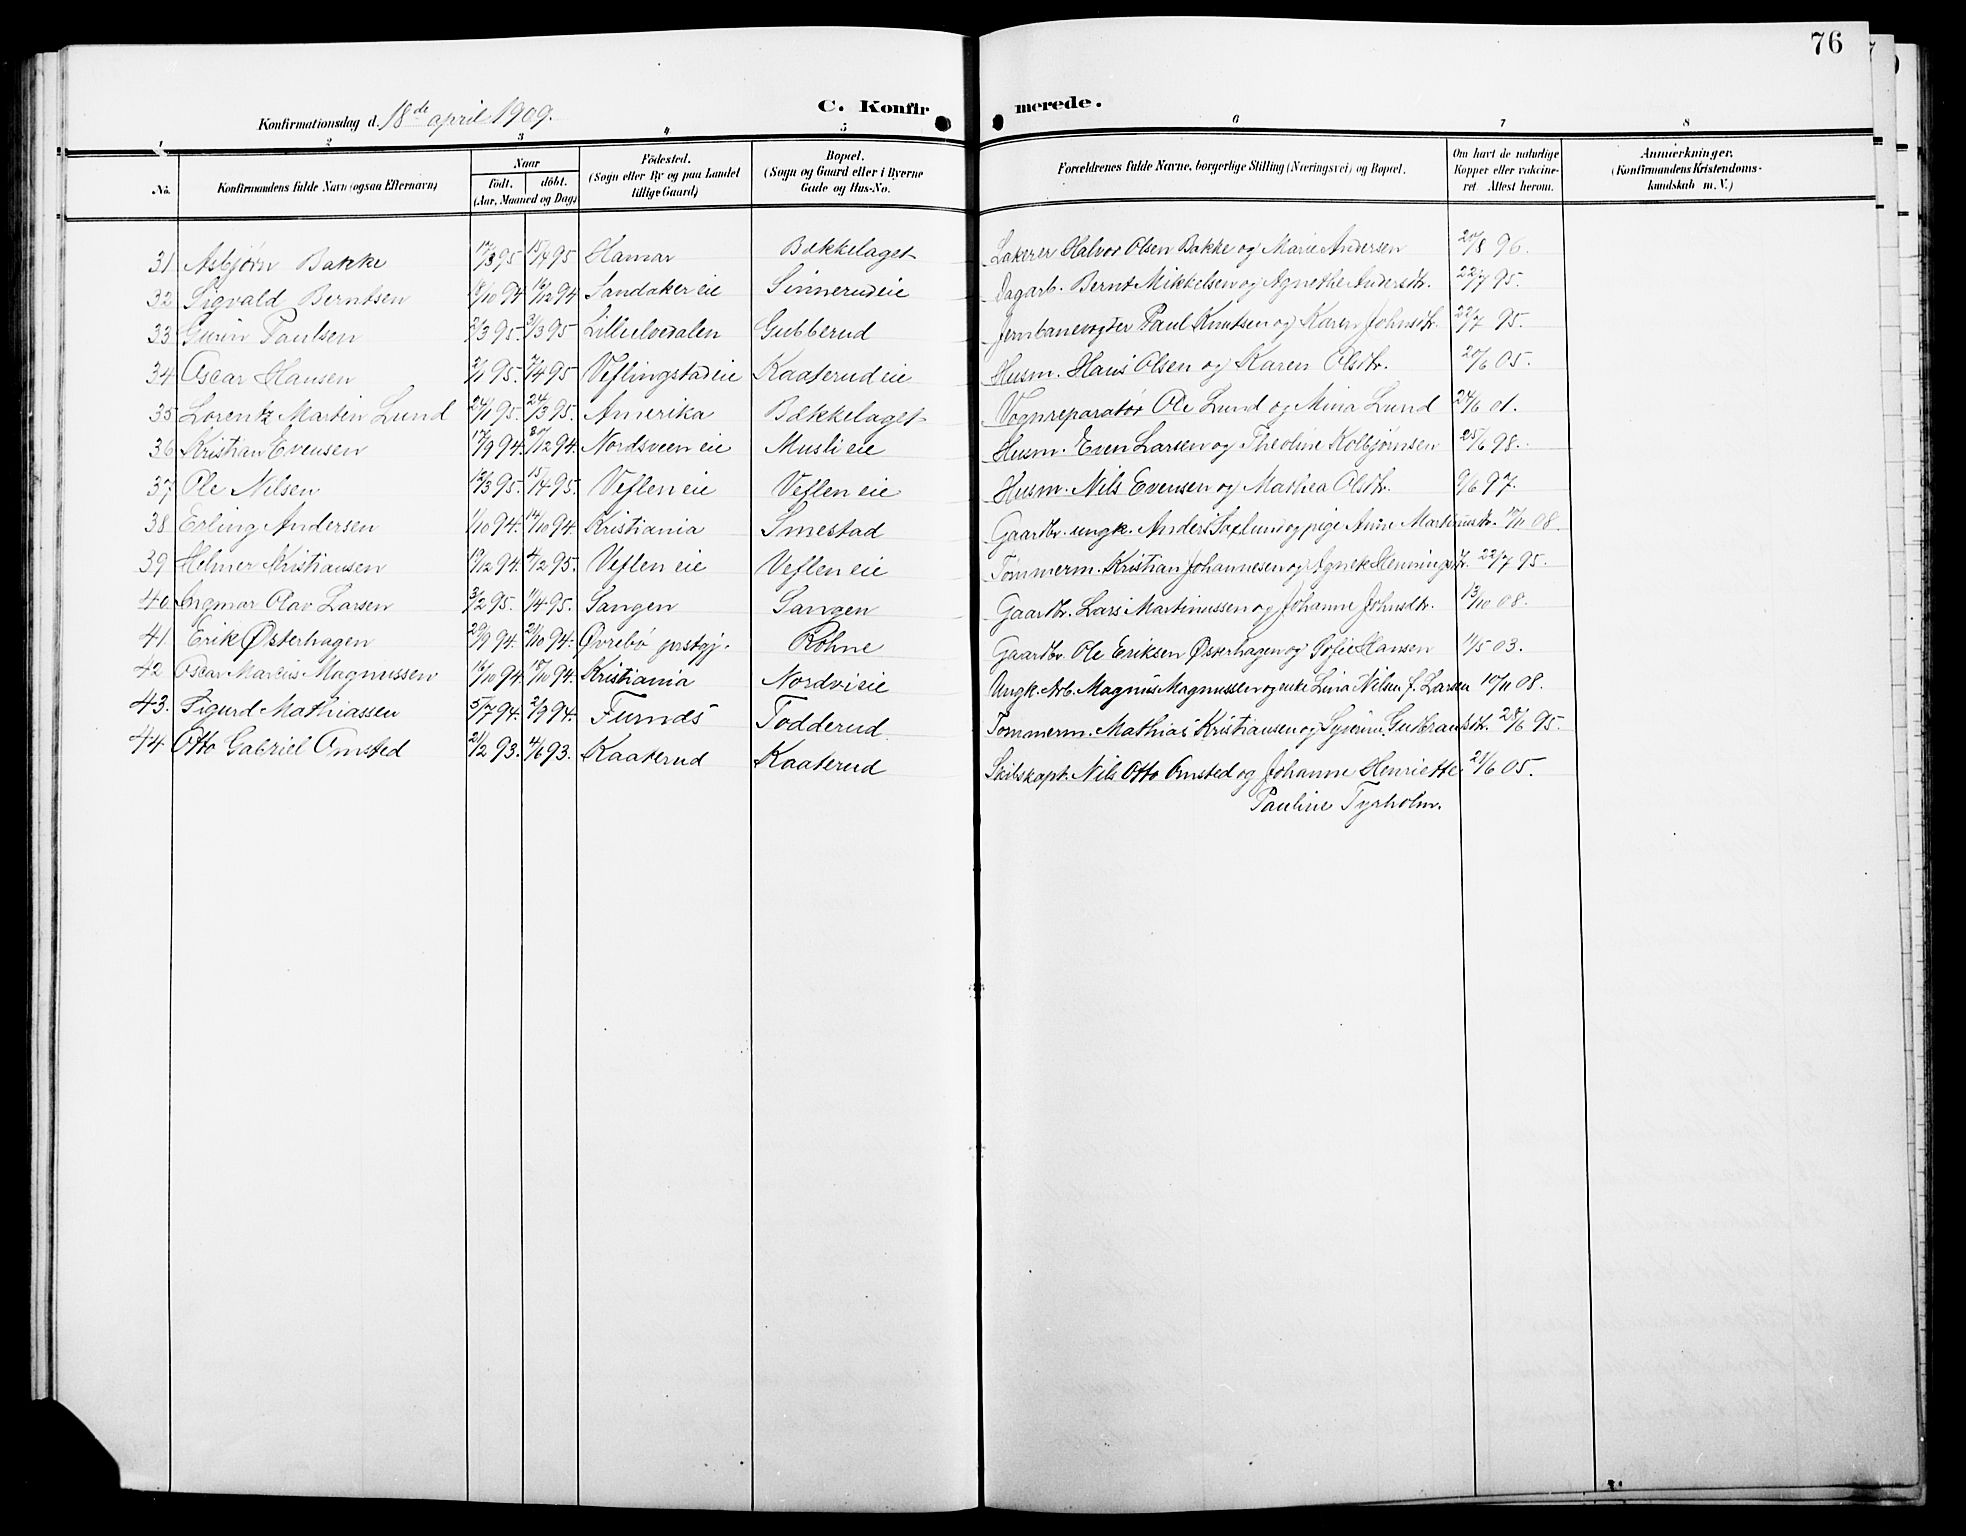 76
Konfirmationsdag d. 18de april 1909.
C. Konfirmerede.
1 2 3 4 5 6 7 8
No. Konfirmandens fulde Navn (ogsaa Efternavn) Naar født. døbt. (Aar, Maaned og Dag) Fødested. (Sogn eller By og paa Landet tillige Gaard) Bopæl. (Sogn og Gaard eller i Byerne Gade og Hus-No. Forældrenes fulde Navne, borgerlige Stilling (Næringsvei) og Bopæl. Om havt de naturlige Kopper eller vaccineret. Attest herom. Anmærkninger. (Konfirmandens Kristendomskundskab m. V.)
31 Asbjørn Bakke 17/3 95 15/4 95 Hamar Bækkelaget Lakerer Halvor Olsen Bakke og Marie Andersen 20/8 96.
32 Sigvald Berntsen 94 16/12 94 Sandaker eie Sinnerud eie Dagarb. Bernt Mikkelsen og Agnethe Andersdtr. 22/7 95.
33 Paulsen 2/3 95. 31/3 95 Lilleelvedalen Gubberud Jernbanevogter Paul Knutsen og Karen Johnsdtr. 22/7 95.
34 Oscar Hansen 2/1 95. 7/4 95 Veflingstad eie Kaaterud eie Husm. Hans Olsen og Karen Olsdtr. 20/6 05.
35 Lorentz Martin Lund 24/1 95. 24/3 95. Amerika Bækkelaget Vognreparatør Ole Lund og Mina Lund 24/6 01.
36 Kristian Evensen 17/9 94. 94. Nordsveen eie Musli eie Husm. Even Larsen og Theoline Kolbjørnsen 25/6 98.
37 Ole Nilsen 12/3 95. 15/4 95. Veflen eie Veflen eie Husm. Nils Evensen og Mathea Olsdtr. 9/6 97.
38 Erling Andersen 1/10 94. 14/10 94. Kristiania Smestad Gaardbr. ungk. Anders og pige Anne Martinusdtr. 08.
39 Helmer Kristiansen 94. 4/2 95. Veflen eie Veflen eie Tømmerm. Kristian Johannesen og Agnete Henningsdtr. 22/7 95.
40 Ingmar Olav Larsen 3/2 95. 11/4 95. Sangen Sangen Gaardbr. Lars Martinussen og Johanne Johnsdtr. 13/10 08.
41 Erik Østerhagen 29/9 94. 21/10 94. Øvrebø prstgj. Rohne Gaardbr. Ole Eriksen Østerhagen og Sofie Hansen 11/5 03.
42 Oscar Marius Magnussen 16/10 94. 94. Kristiania Nordvi eie Ungk. Arb. Magnus Magnussen og enke Lina Nilsen f. Larsen 10/11 08.
43. Sigurd Mathiassen 5/7 94. 2/9 94. Furnæs Todderud Tømmerm. Mathias Kristiansen og Syverine Gulbrandsdtr. 28/6 95.
44 Otto Gabriel Omsted 21/2 93. 4/6 93. Kaaterud Kaaterud Skibskapt. Nils Otto Omsted og Johanne Henriette 21/6 05.
Pauline Tyrholm.